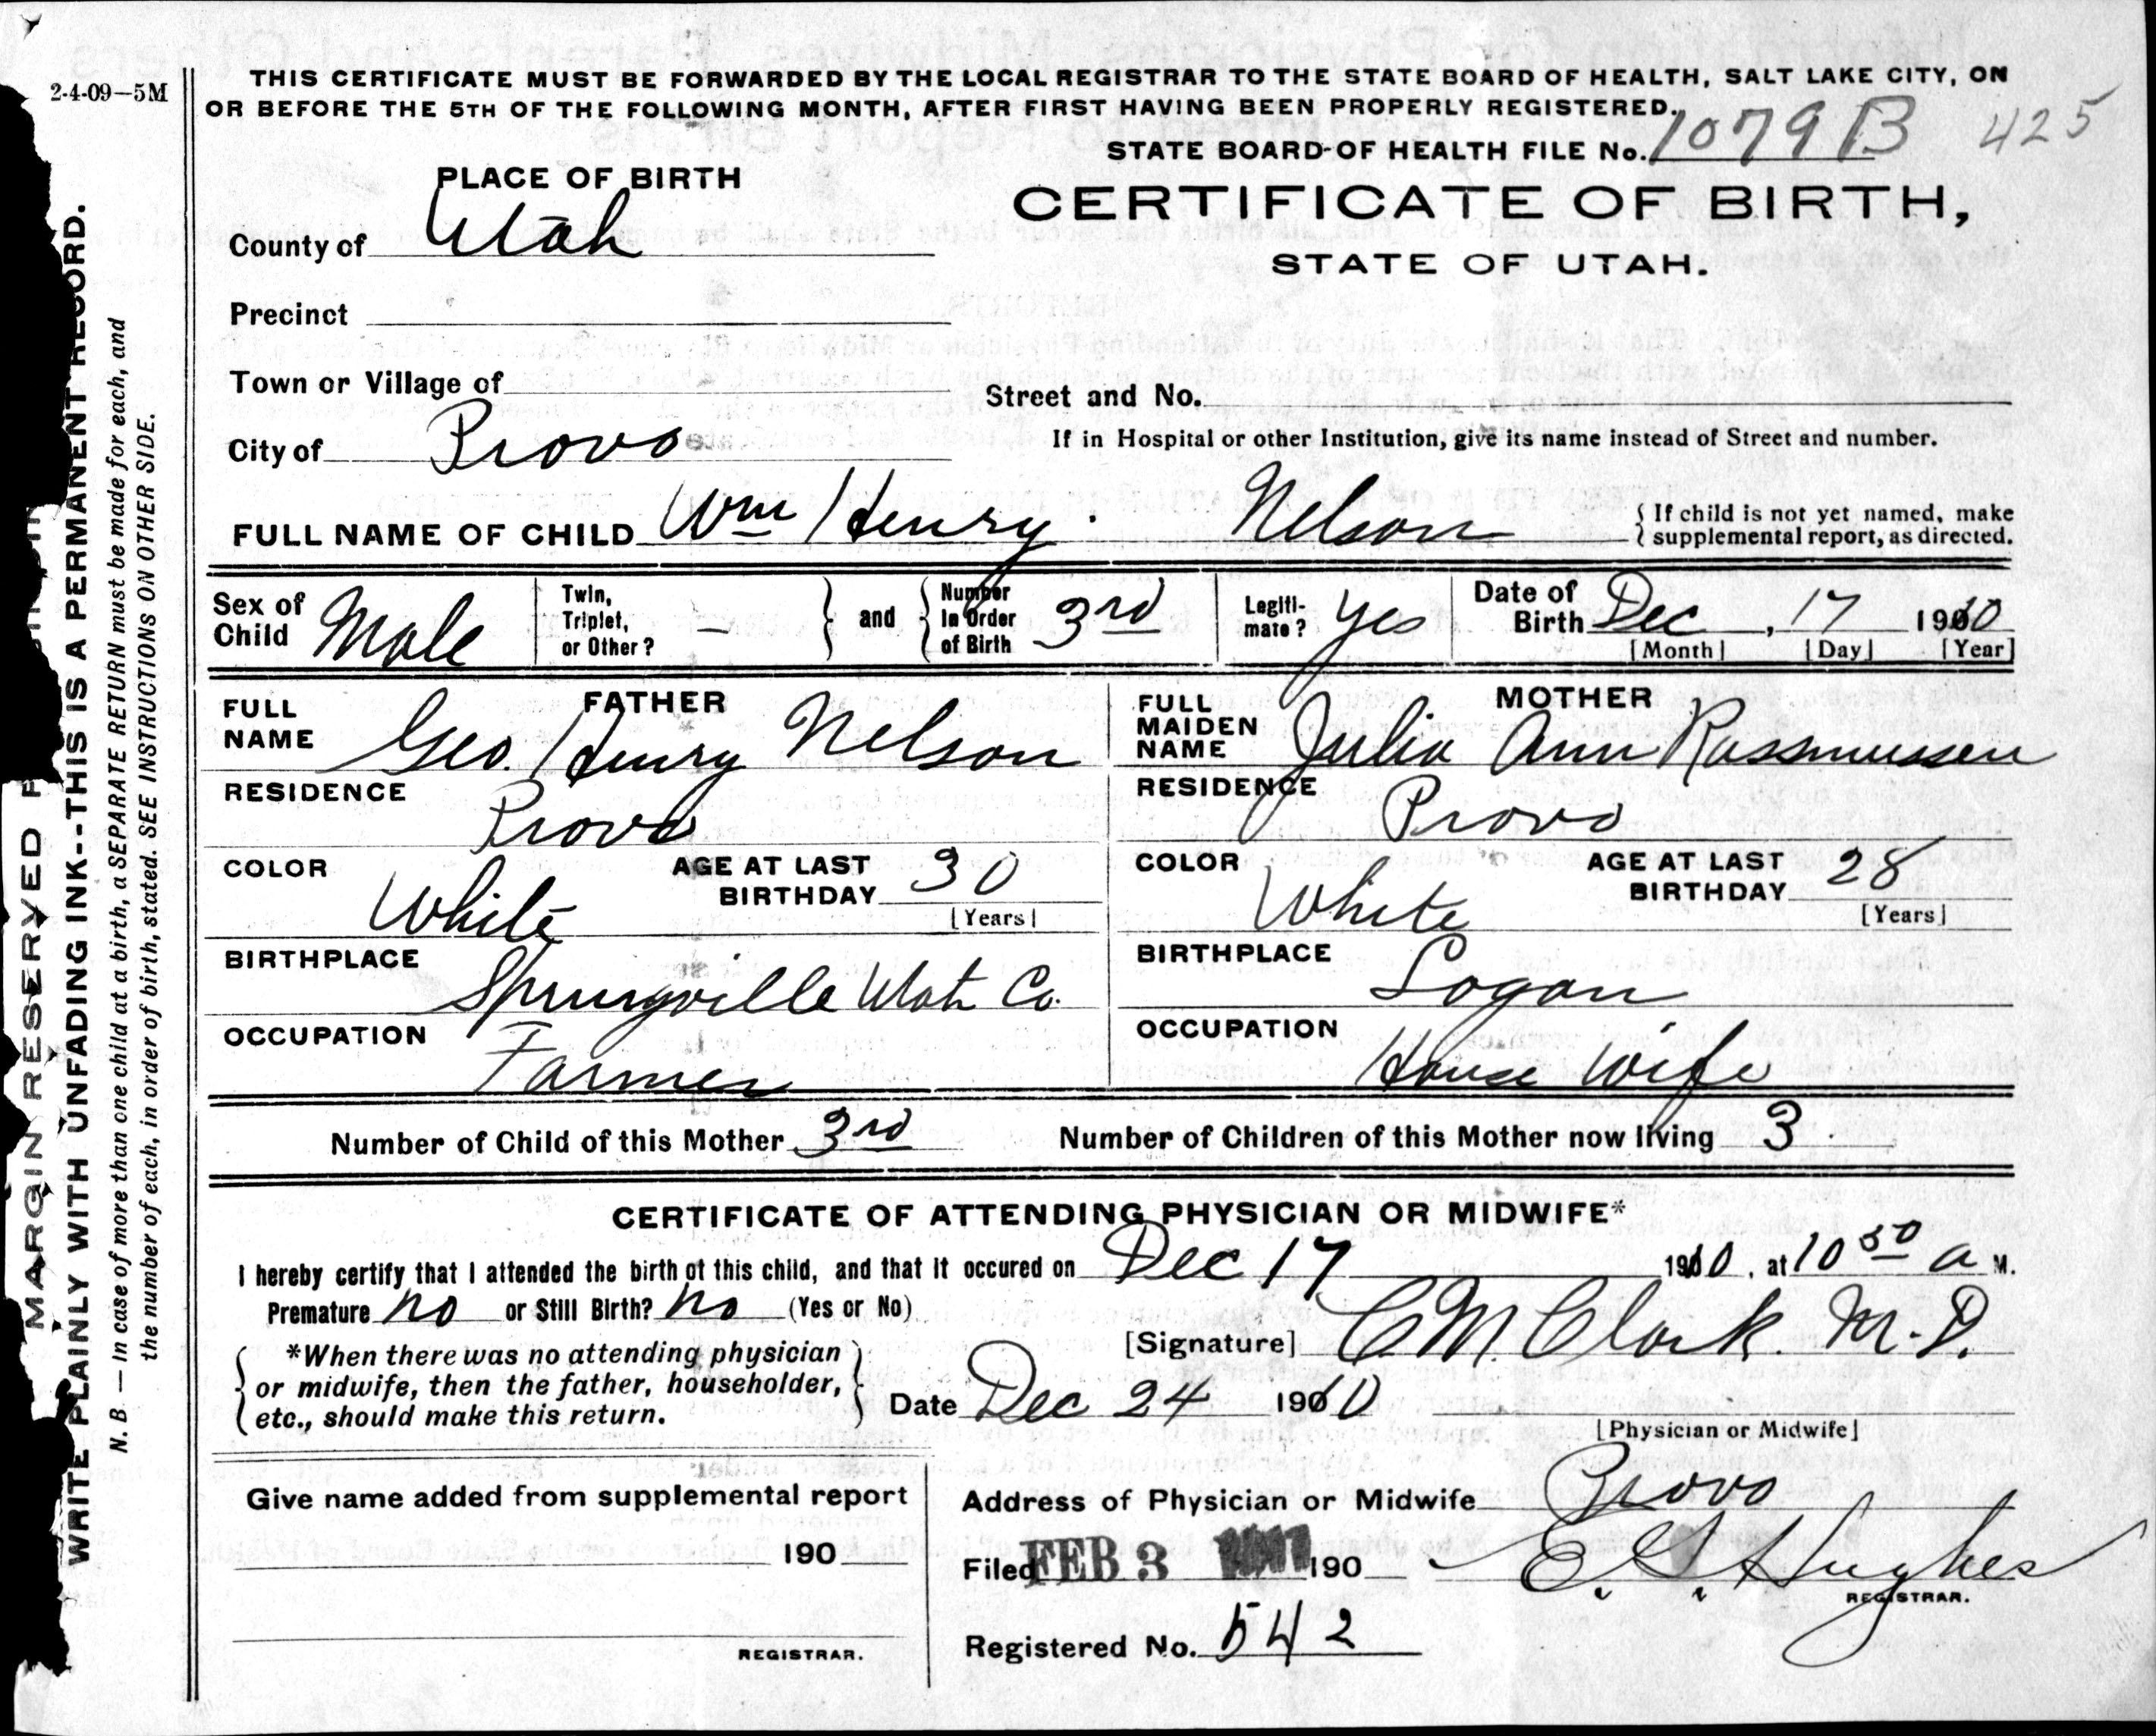 2-4-09-5M
THIS CERTIFICATE MUST BE FORWARDED BY THE LOCAL REGISTRAR TO THE STATE BOARD OF HEALTH, SALT LAKE CITY, ON
OR BEFORE THE 5TH OF THE FOLLOWING MONTH, AFTER FIRST HAVING BEEN PROPERLY REGISTERED.
STATE BOARD OF HEALTH FILE No. 1079 B 425
PLACE OF BIRTH
CERTIFICATE OF BIRTH,
STATE OF UTAH.
County of Utah
Precinct
Town or Village of
Street and No.
City of Provo
If in Hospital or other Institution, give its name instead of Street and number.
FULL NAME OF CHILD Wm Henry Nelson
{ If child is not yet named, make
{ supplemental report, as directed.
Sex of Child Male
Twin, Triplet, or Other? —
} and {
Number In Order of Birth 3rd
Legitimate? Yes
Date of Birth Dec, 17 1910
[Month] [Day] [Year]
FATHER
FULL NAME Geo. Henry Nelson
RESIDENCE Provo
COLOR White AGE AT LAST BIRTHDAY 30
[Years]
BIRTHPLACE Springville Utah Co.
OCCUPATION Farmer
MOTHER
FULL MAIDEN NAME Julia Ann Rassmussen
RESIDENCE Provo
COLOR White AGE AT LAST BIRTHDAY 28
[Years]
BIRTHPLACE Logan
OCCUPATION House Wife
Number of Child of this Mother 3rd Number of Children of this Mother now living 3
CERTIFICATE OF ATTENDING PHYSICIAN OR MIDWIFE*
I hereby certify that I attended the birth of this child, and that it occured on Dec 17 1910, at 10 50 a M.
Premature no or Still Birth? no (Yes or No)
[Signature] C M. Clark. M. D.
*When there was no attending physician
or midwife, then the father, householder,
etc., should make this return.
Date Dec 24 1910
[Physician or Midwife]
Give name added from supplemental report
190
REGISTRAR.
Address of Physician or Midwife Provo
Filed FEB 3 190
E. G. Hughes
REGISTRAR.
Registered No. 542
MARGIN RESERVED F
WRITE PLAINLY WITH UNFADING INK--THIS IS A PERMANENT RECORD.
N. B. — In case of more than one child at a birth, a SEPARATE RETURN must be made for each, and
the number of each, in order of birth, stated. SEE INSTRUCTIONS ON OTHER SIDE.